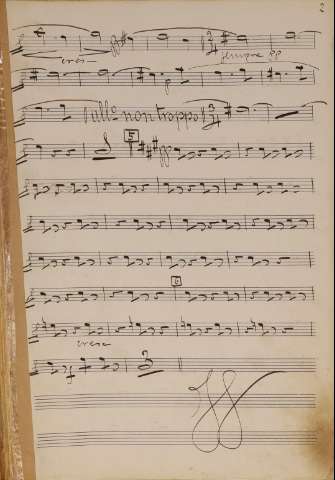 2
cres
sempre pp
All° non troppo
5
6
cresc
f
3